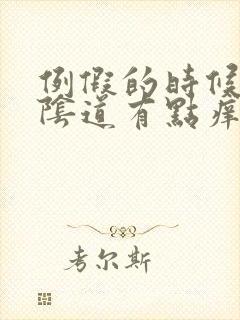 例假的時候
陰道有點痒
考尔斯